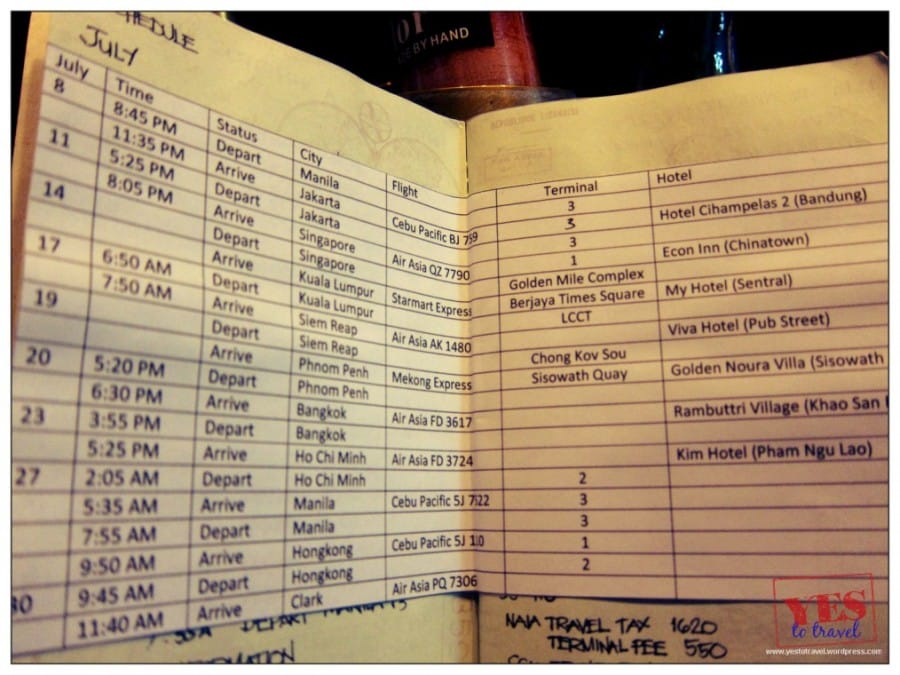 SCHEDULE
JULY
OT
BY HAND
REPUBLIQUE LIBANAISE
July Time Status City Flight Terminal Hotel
8 8:45 PM Depart Manila Cebu Pacific 3
11:35 PM Arrive Jakarta 3 Hotel Cihampelas 2 (Bandung)
11 5:25 PM Depart Jakarta Air Asia QZ 7790 3
8:05 PM Arrive Singapore 1 Econ Inn (Chinatown)
14 Depart Singapore Starmart Express Golden Mile Complex
Arrive Kuala Lumpur Berjaya Times Square My Hotel (Sentral)
17 6:50 AM Depart Kuala Lumpur Air Asia AK 1480 LCCT
7:50 AM Arrive Siem Reap Viva Hotel (Pub Street)
19 Depart Siem Reap Mekong Express Chong Kov Sou
Arrive Phnom Penh Sisowath Quay Golden Noura Villa (Sisowath
20 5:20 PM Depart Phnom Penh Air Asia FD 3617
6:30 PM Arrive Bangkok Rambuttri Village (Khao San
23 3:55 PM Depart Bangkok Air Asia FD 3724
5:25 PM Arrive Ho Chi Minh Kim Hotel (Pham Ngu Lao)
27 2:05 AM Depart Ho Chi Minh Cebu Pacific 5J 2
5:35 AM Arrive Manila 3
7:55 AM Depart Manila Cebu Pacific 5J 3
9:50 AM Arrive Hongkong 1
30 9:45 AM Depart Hongkong Air Asia PQ 7306 2
11:40 AM Arrive Clark
DEPART
NAIA TRAVEL TAX 1620
TERMINAL FEE 550
YES
to travel
www.yestotravel.wordpress.com